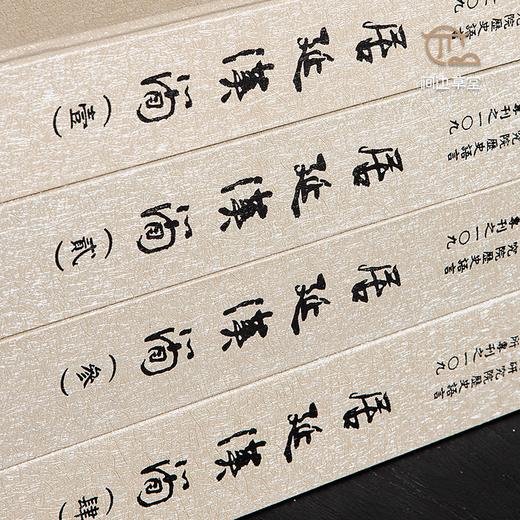 院歷史語
居延漢簡（壹）
究院歷史語言
專刊之一〇九
居延漢簡（貳）
究院歷史語言
專刊之一〇九
居延漢簡（參）
研究院歷史語言
所專刊之一〇九
居延漢簡（肆）